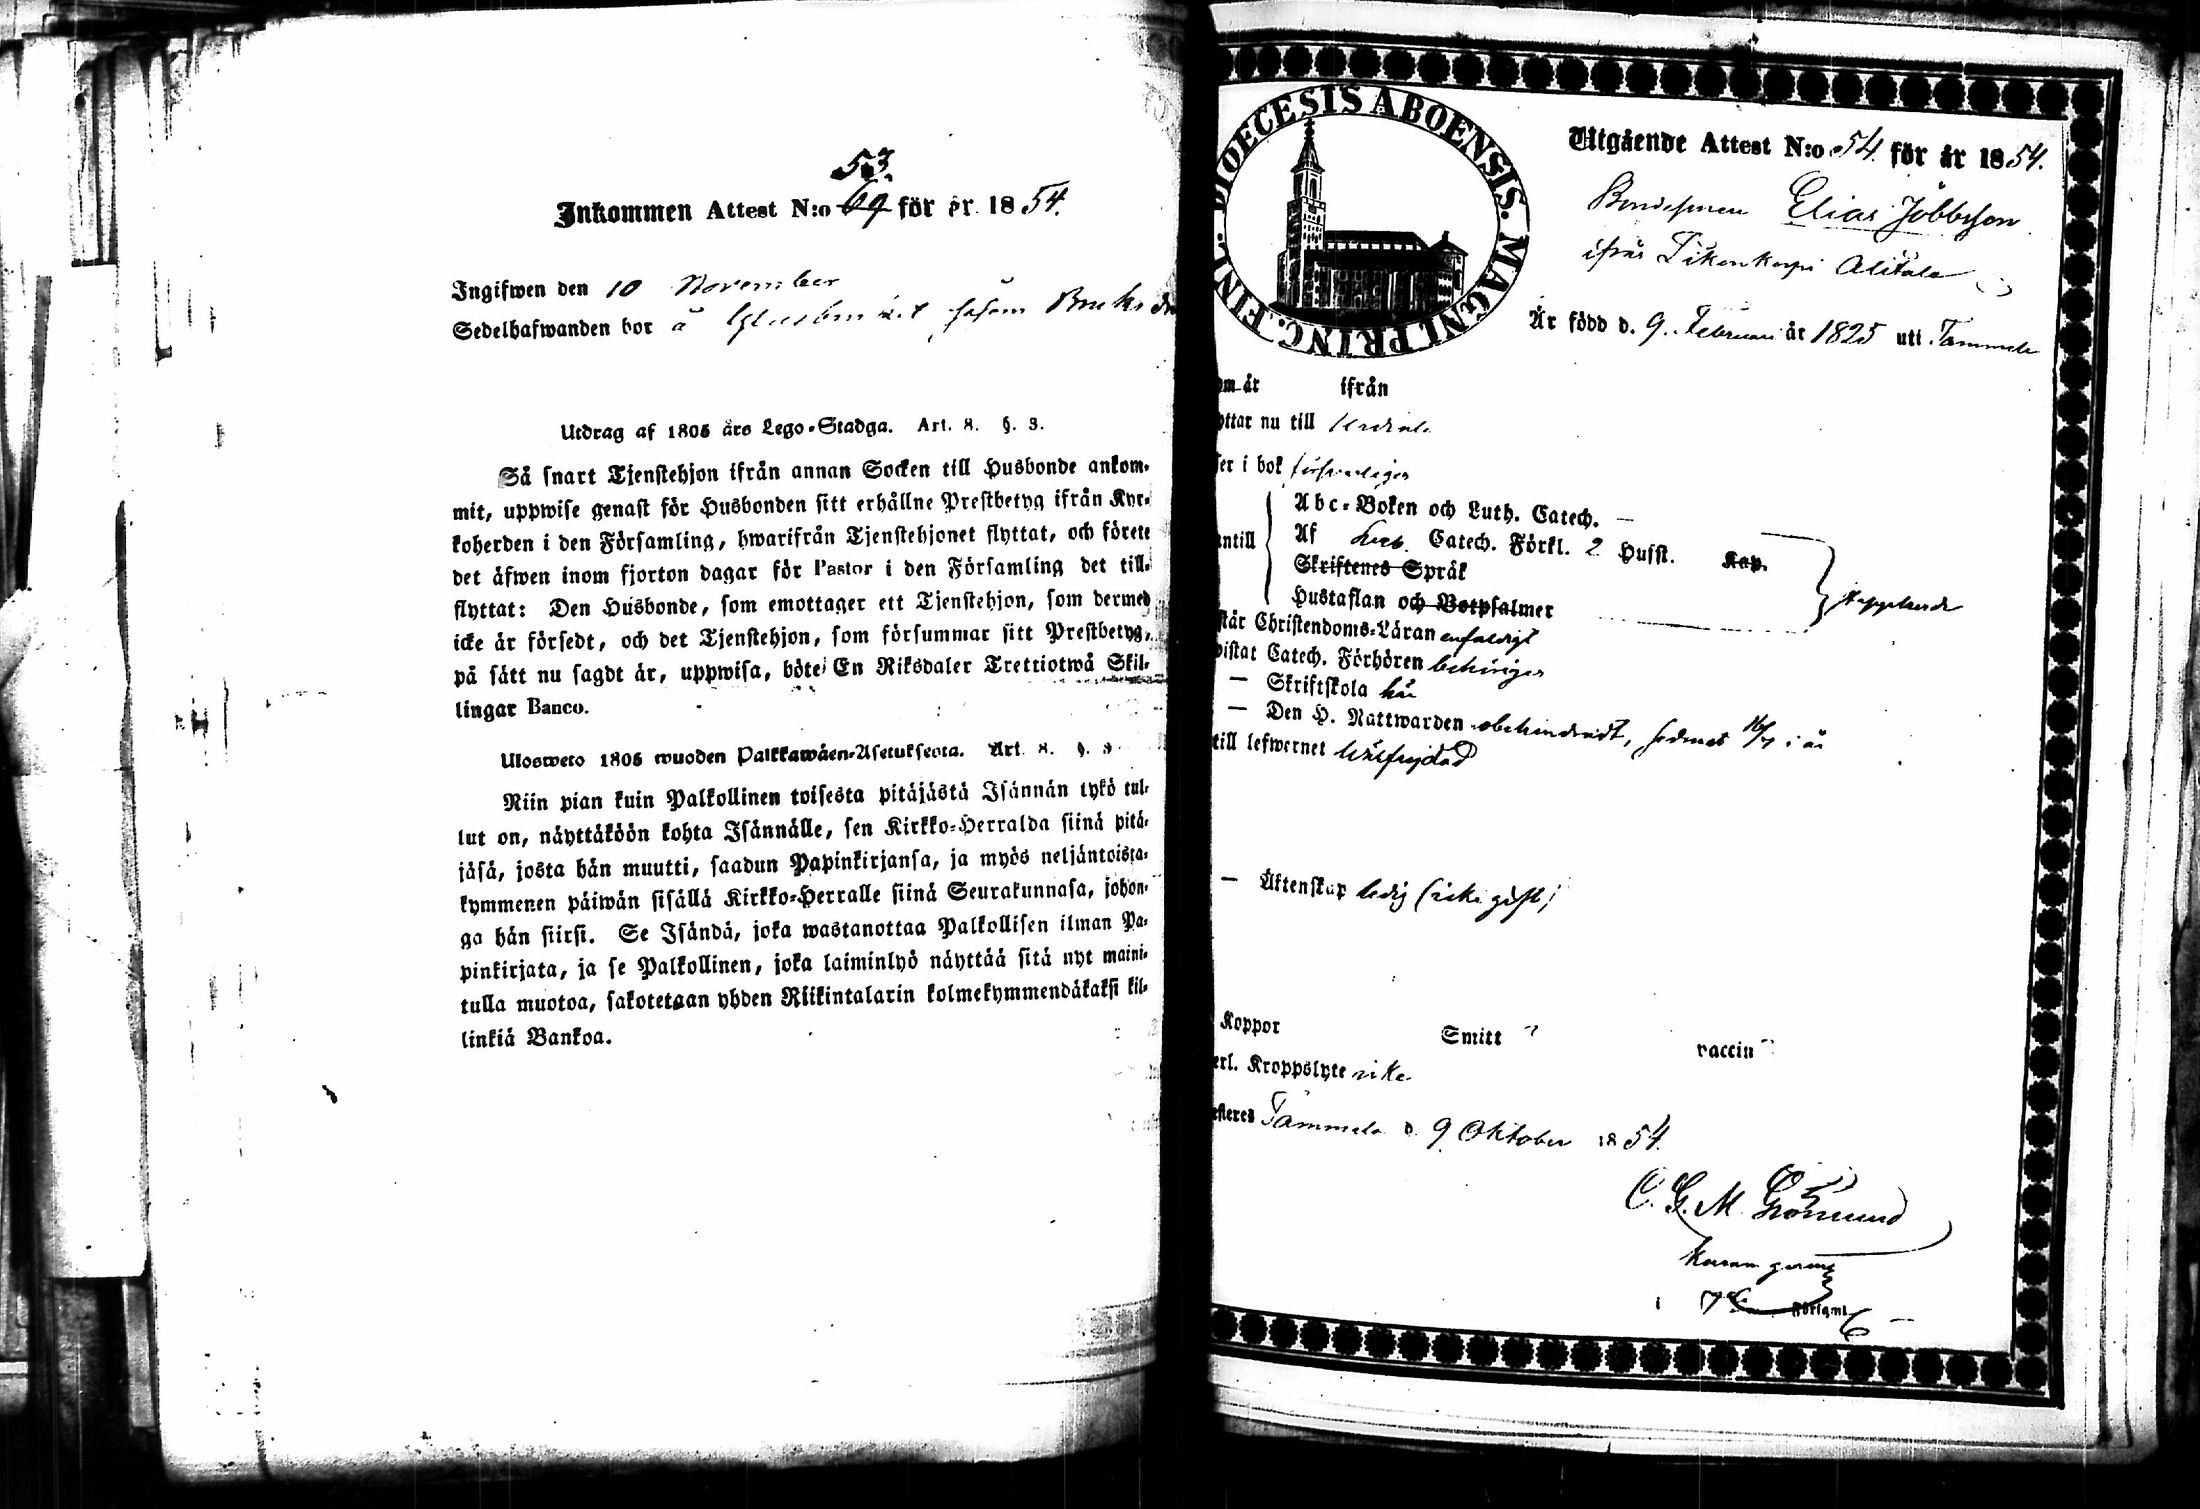 53.
Inkommen Attest N:o 69 för år 1854.
Ingifwen den 10 November
Sedelhafwanden bor å såsom Bruks
Utdrag af 1805 års Lego-Stadga. Art. 8. §. 3.
Så snart Tjenstehjon ifrån annan Socken till Husbonde ankom-
mit, uppwise genast för Husbonden sitt erhållne Prestbetyg ifrån Kyr-
koherden i den Församling, hwarifrån Tjenstehjonet flyttat, och förete
det äfwen inom fjorton dagar för Pastor i den Församling det till-
flyttat: Den Husbonde, som emottager ett Tjenstehjon, som dermed
icke är försedt, och det Tjenstehjon, som försummar sitt Prestbetyg,
på sätt nu sagdt är, uppwisa, böte En Riksdaler Trettiotwå Skil-
lingar Banco.
Ulosweto 1805 wuoden Palkkawäen-Asetuksesta. Art. 8. §. 3
Niin pian kuin Palkollinen toisesta pitäjästä Isännän tykö tul-
lut on, näyttäköön kohta Isännälle, sen Kirkko-Herralda siinä pitä-
jäsä, josta hän muutti, saadun Papinkirjansa, ja myös neljäntoista-
kymmenen päiwän sisällä Kirkko-Herralle siinä Seurakunnasa, johon-
ga hän siirsi. Se Isändä, joka wastanottaa Palkollisen ilman Pa-
pinkirjata, ja se Palkollinen, joka laiminlyö näyttää sitä nyt maini-
tulla muotoa, sakotetaan yhden Riikintalarin kolmekymmendäkaksi kil-
linkiä Bankoa.
DIOECESIS ABOENSIS. MAGNI PRINC. FINL.
Utgående Attest N:o 54. för år 1854.
Bondesonen Elias Jöbbsson
ifrån Alitalo
Är född d. 9. Februari år 1825 uti Tammela
om år ifrån
yttar nu till Urdiala
ser i bok försvarligen
Abc-Boken och Luth. Catech. —
antill Af Sveb. Catech. Förkl. 2 Husst. Kap.
Skriftenes Språk
Hustaflan och Botpsalmer
står Christendoms-Läran enfaldigt
wistat Catech. Förhören behörigen
— Skriftskola här
— Den H. Nattwarden obehindradt, i år
till lefwernet wälfrejdad
— Äktenskap ledig (icke gift)
Koppor Smitt vaccin
erl. Kroppslyte icke
esteres Tammela d. 9 Oktober 1854.
C. G. M. Grönlund
i Församl.